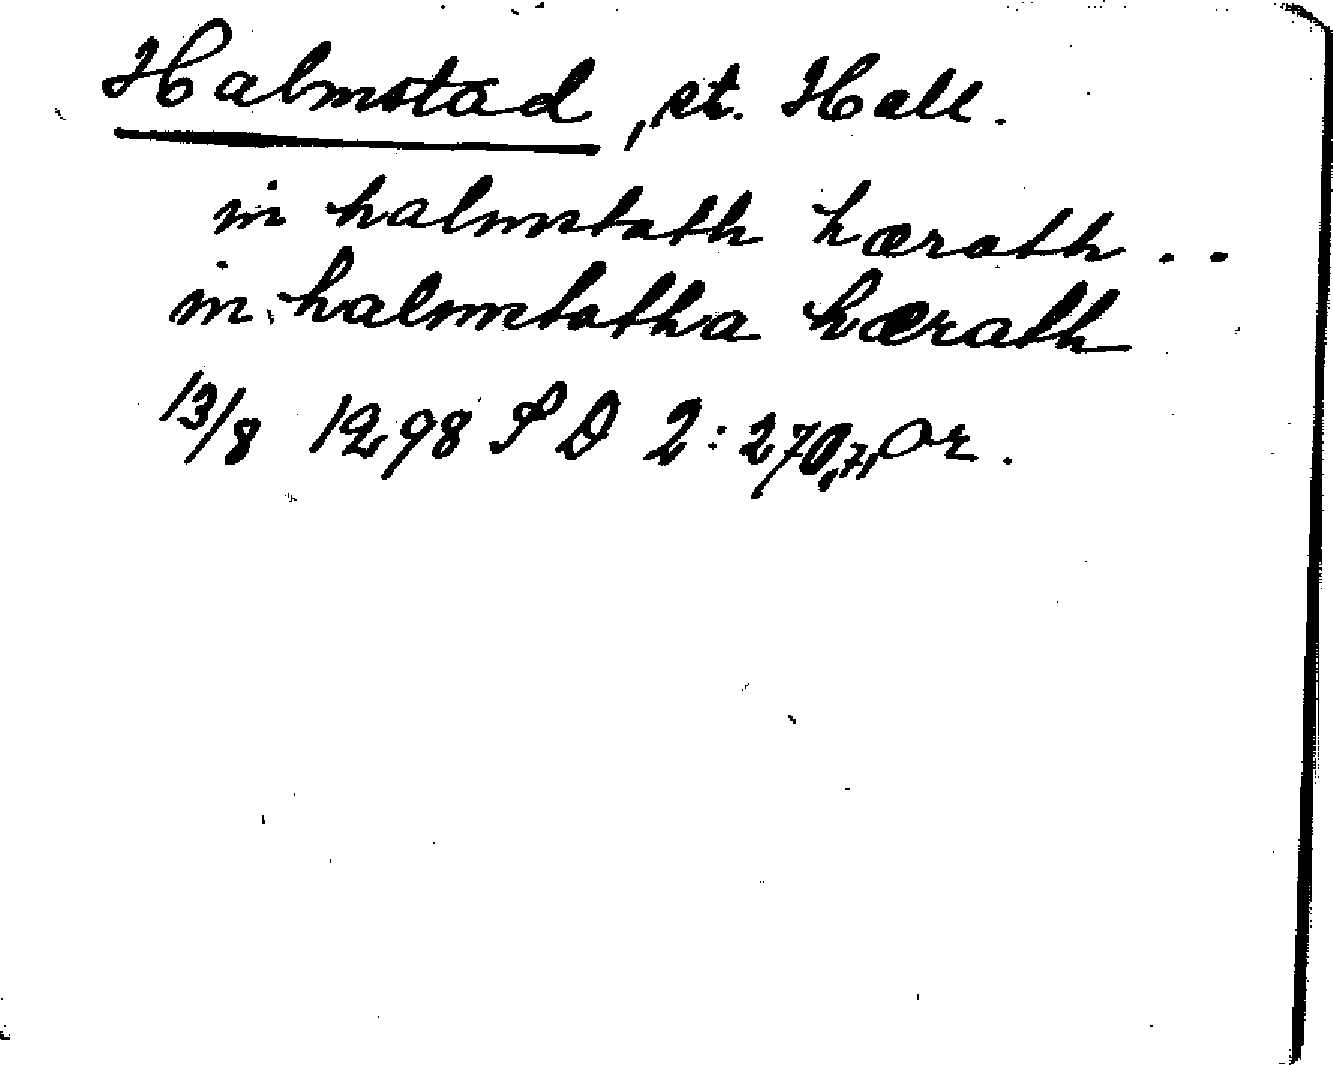 Halmstad, st. Hall.
in halmstath hærath . .
in halmstatha hærath
13/8 1298 S D 2: 270, 71, Or.